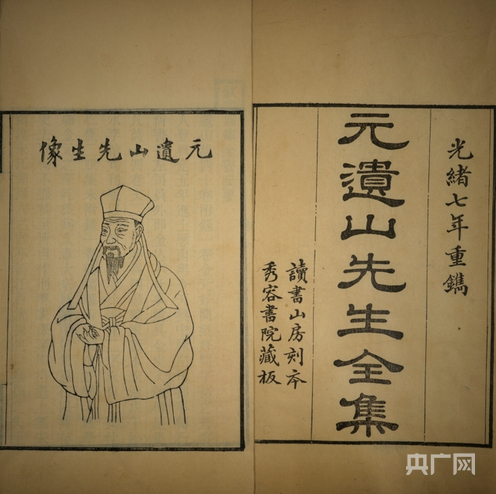 光緒七年重鐫
元遺山先生全集
讀書山房刻本
秀容書院藏板
元遺山先生像
央广网